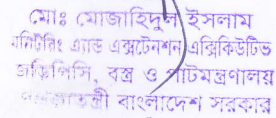 মোঃ মোজাহিদুল ইসলাম
মনিটরিং এ্যান্ড এক্সটেনশন এক্সিকিউটিভ
জডিপিসি, বস্ত্র ও পাটমন্ত্রণালয়
গণপ্রজাতন্ত্রী বাংলাদেশ সরকার